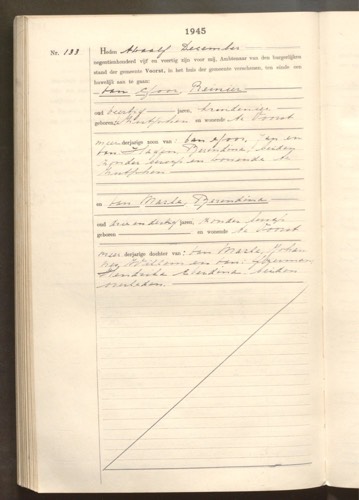 1945
Nr. 133 Heden twaalf December
negentienhonderd vijf en veertig zijn voor mij, Ambtenaar van den burgerlijken
stand der gemeente Voorst, in het huis der gemeente verschenen, ten einde een
huwelijk aan te gaan:
van Reinier
oud veertig jaren,
geboren te Zutphen en wonende te Voorst
meerderjarige zoon van: van Jan en
van Berendina, beiden
zonder beroep en wonende te
Zutphen
en van Marle Berendina
oud drie en dertig jaren, zonder beroep
geboren en wonende te Voorst
meerderjarige dochter van: van Marle, Johan
Willem en van:
Hendrika beiden
overleden.